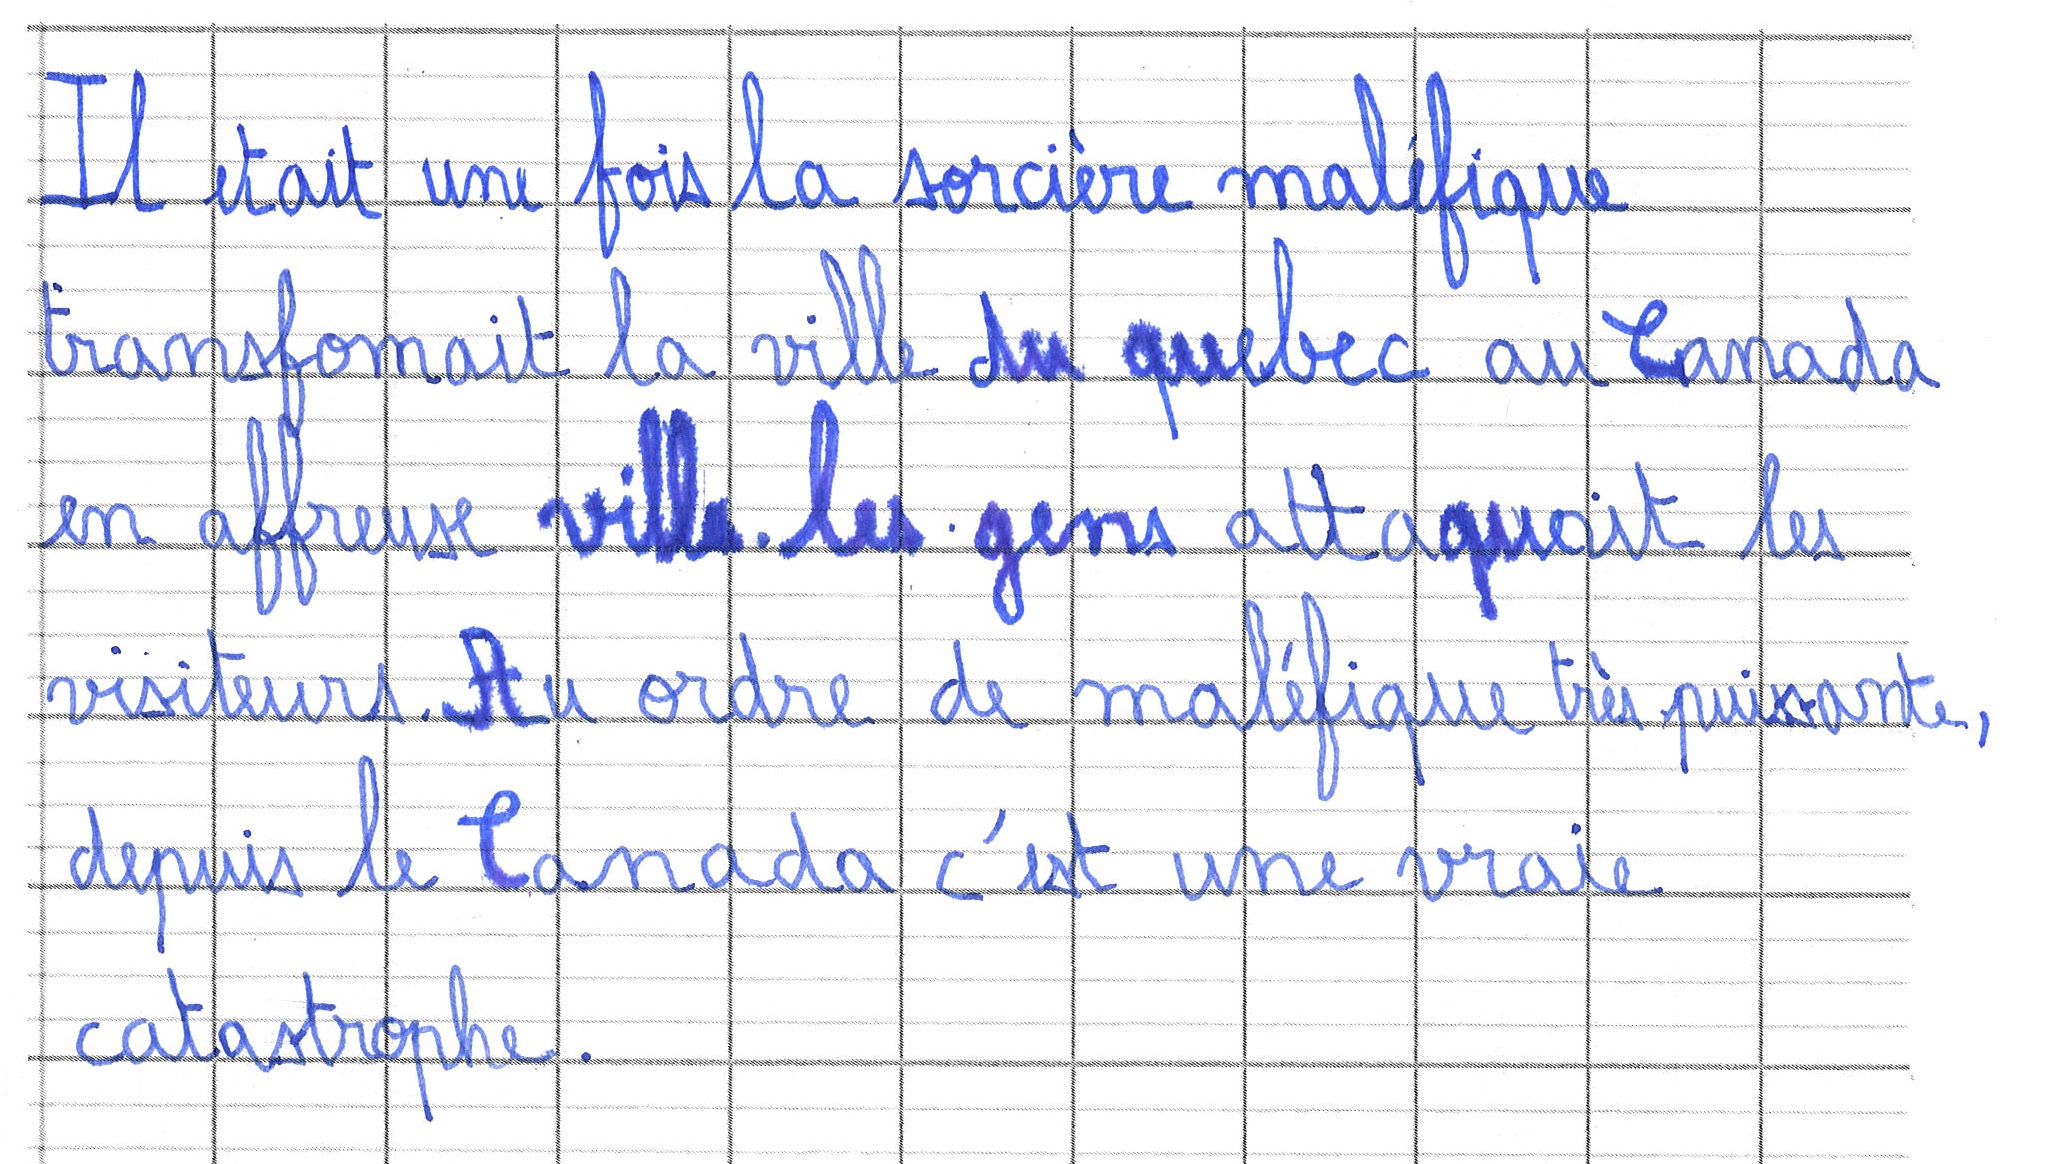 Il etait une fois la sorcière maléfique
transfomait la ville du quebec au Canada
en affreuse ville. les gens attaquait les
visiteurs. Au ordre de maléfique très puissante,
depuis le Canada c'est une vraie
catastrophe.